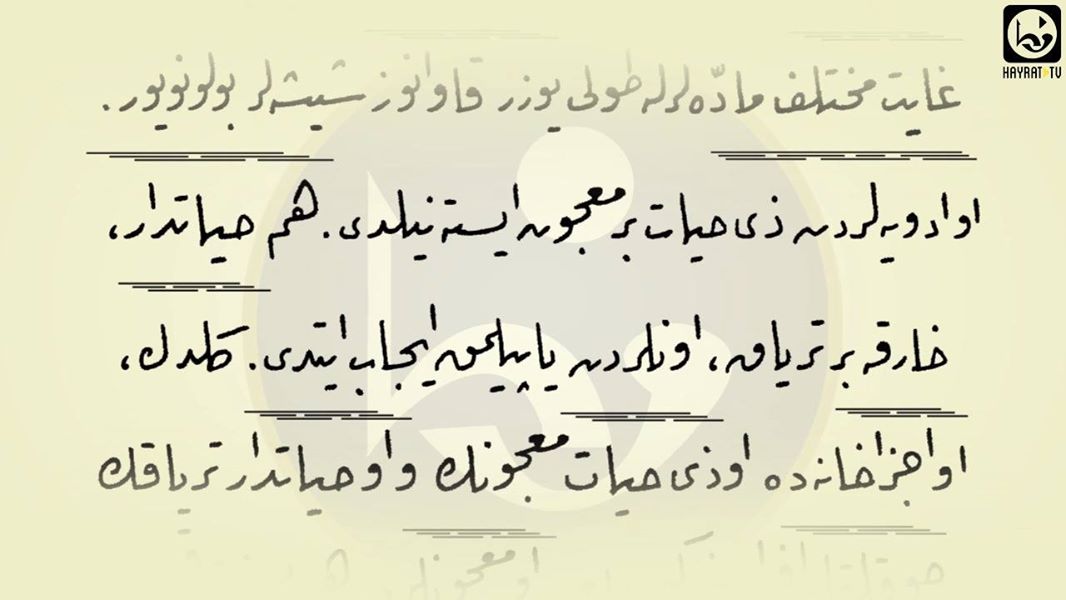 HAYRAT TV
غايت مختلف مادّه لرله طولی یوزر قاوانوز شیشه لر بولونویور.
او ادویه لردن ذی حیات بر معجون ایسته نیلدی. هم حیاتدار،
خارقه بر تریاق، اونلردن یاپیلمق ایجاب ایتدی. کلدك،
او اجزاخانه ده او ذی حیات معجونك و او حیاتدار تریاقك